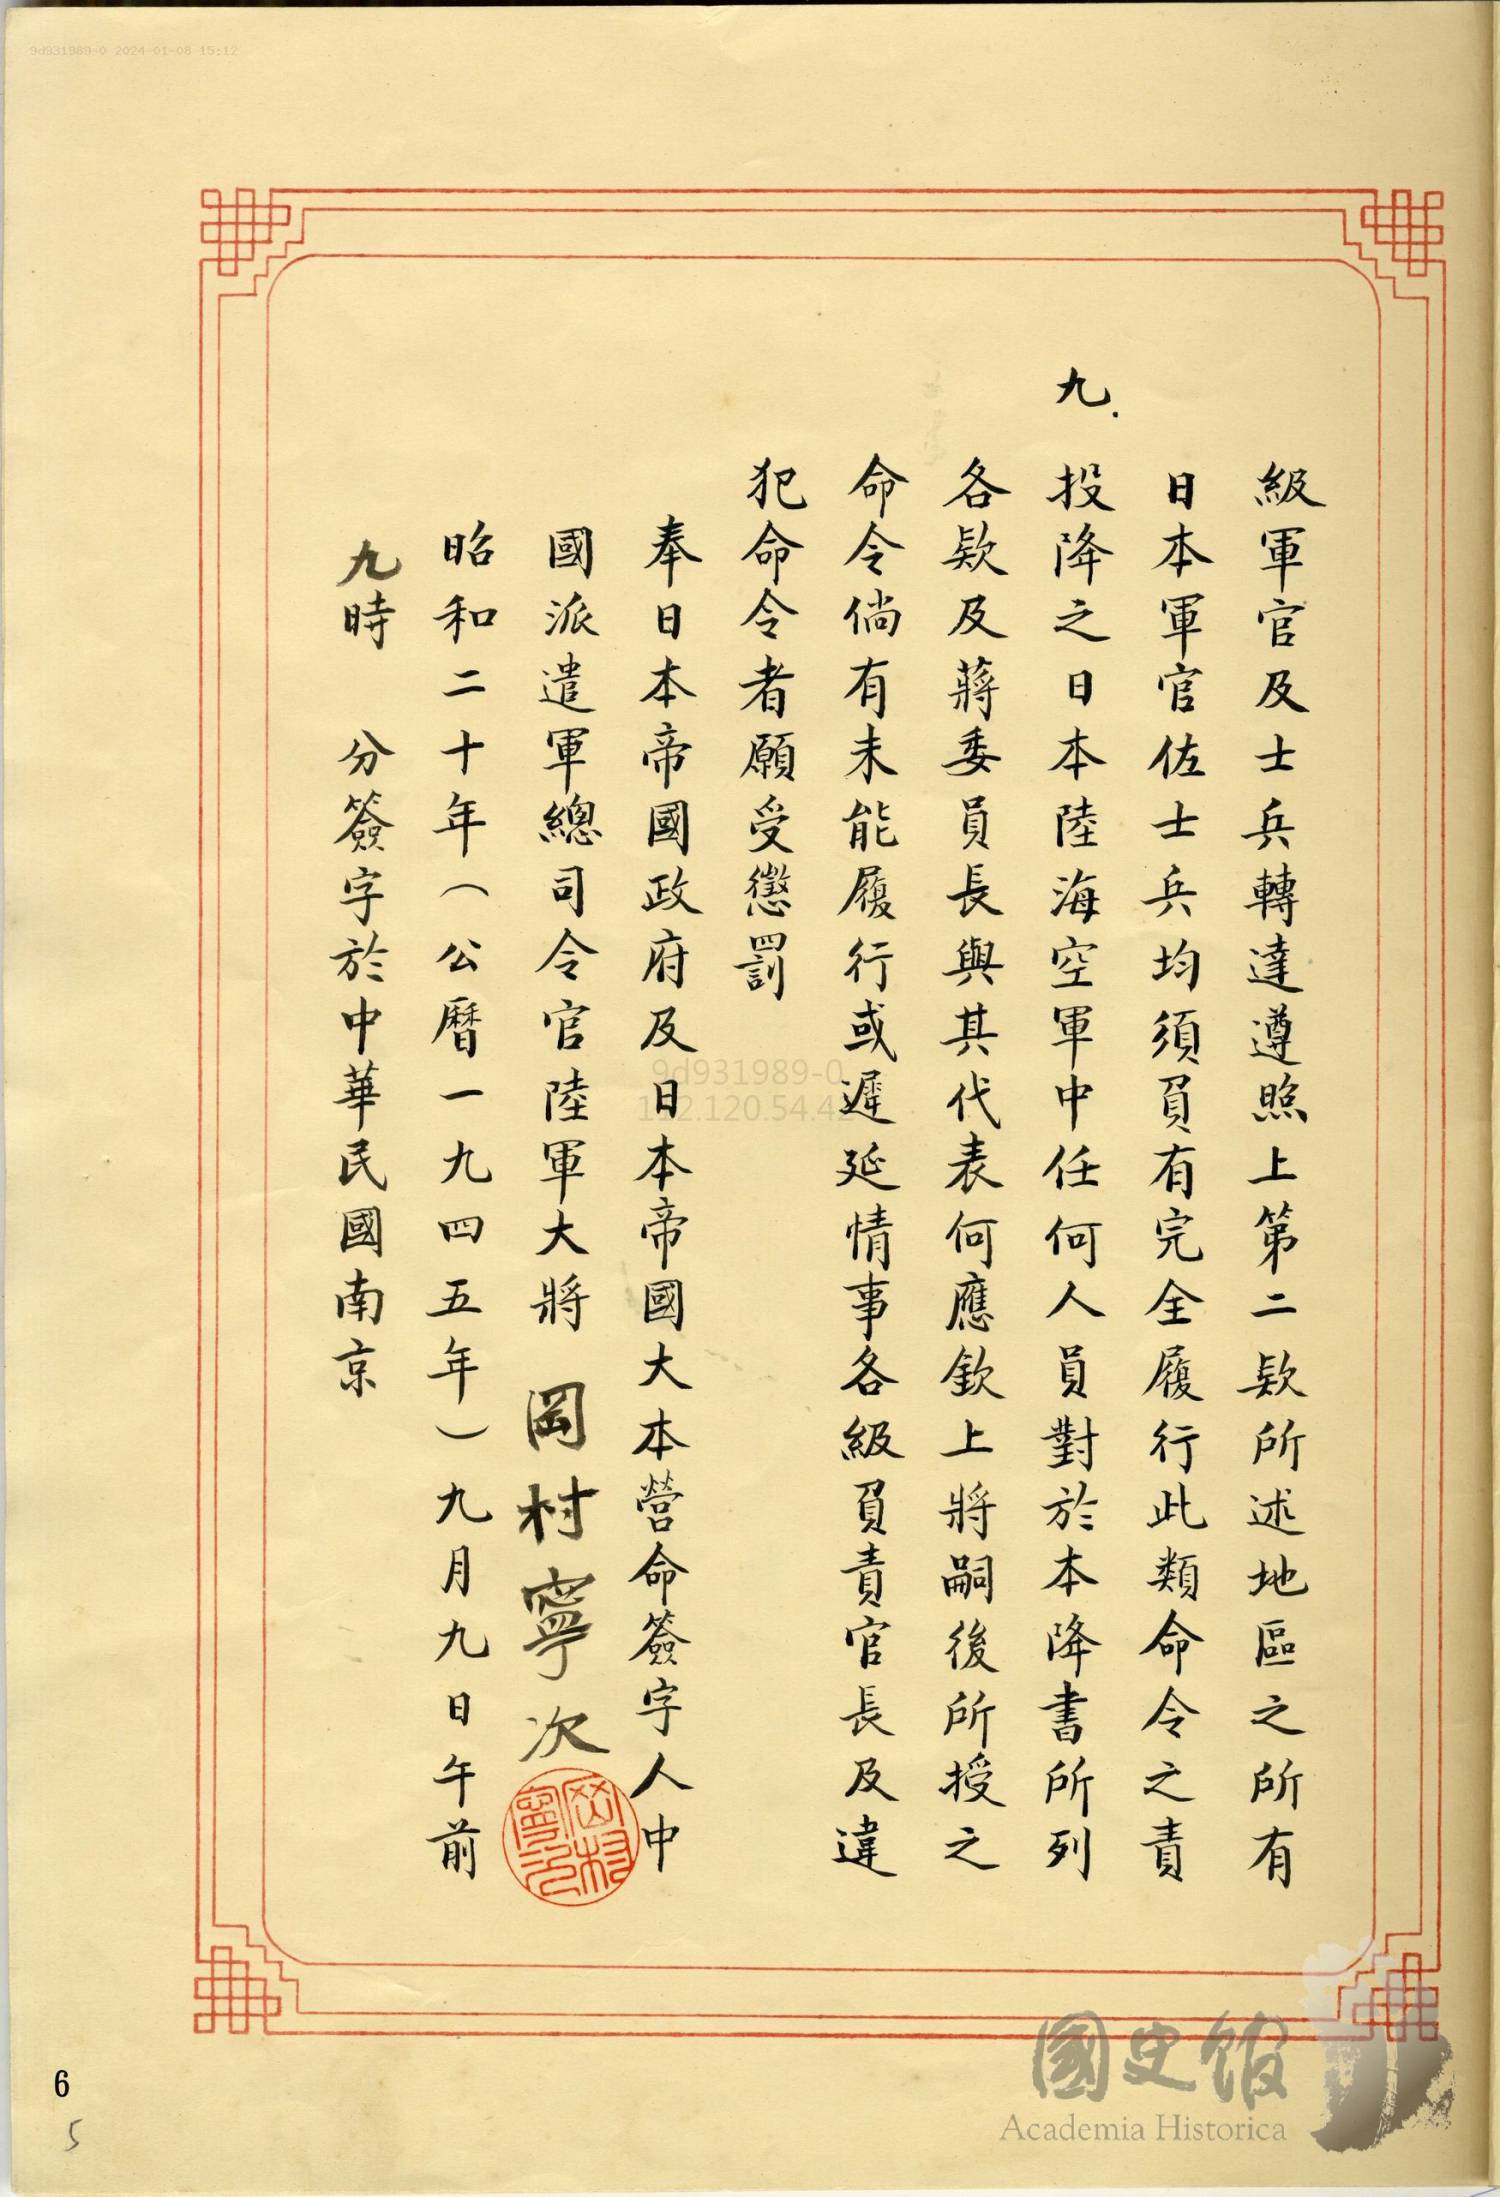 9d931989-0 2024-01-08 15:12
級軍官及士兵轉達遵照上第二款所述地區之所有
日本軍官佐士兵均須負有完全履行此類命令之責
九.投降之日本陸海空軍中任何人員對於本降書所列
各款及蔣委員長與其代表何應欽上將嗣後所授之
命令倘有未能履行或遲延情事各級負責官長及違
犯命令者願受懲罰
奉日本帝國政府及日本帝國大本營命簽字人中
國派遣軍總司令官陸軍大將 岡村寧次
岡村寧次
昭和二十年(公曆一九四五年)九月九日午前
九時 分簽字於中華民國南京
9d931989-0
112.120.54.42
國史館
Academia Historica
6
5